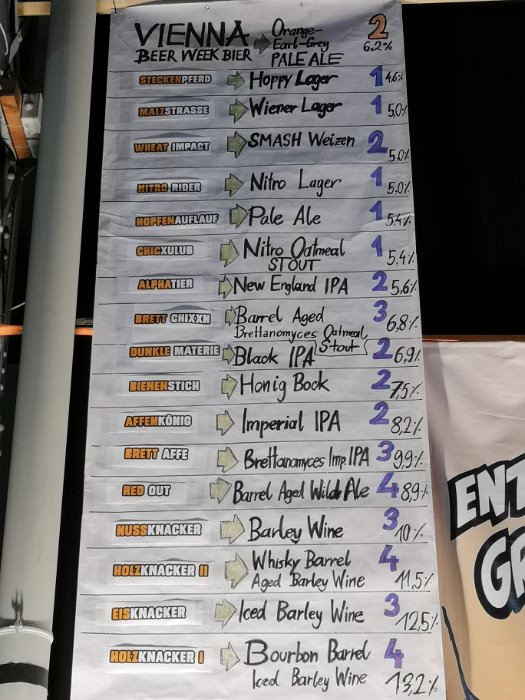 VIENNA Orange- 2
BEER WEEK BIER Earl-Grey 6,2%
PALE ALE
STECKENPFERD Hoppy Lager 1 4,6%
MALZSTRASSE Wiener Lager 1 5,0%
WHEAT IMPACT SMASH Weizen 2 5,0%
NITRO RIDER Nitro Lager 1 5,0%
HOPFENAUFLAUF Pale Ale 1 5,4%
CHICXULUB Nitro Oatmeal 1
STOUT 5,4%
ALPHATIER New England IPA 2 5,6%
BRETT CHIXXN Barrel Aged 3
Brettanomyces Oatmeal 6,8%
Stout
DUNKLE MATERIE Black IPA 2 6,9%
BIENENSTICH Honig Bock 2 7,5%
AFFENKÖNIG Imperial IPA 2 8,2%
BRETT AFFE Brettanomyces Imp. IPA 3 9,9%
RED OUT Barrel Aged Wild Ale 4 8,9%
NUSSKNACKER Barley Wine 3 10%
HOLZKNACKER II Whisky Barrel 4
Aged Barley Wine 11,5%
EISKNACKER Iced Barley Wine 3 12,5%
HOLZKNACKER I Bourbon Barrel 4
Iced Barley Wine 13,2%
ENT
GR